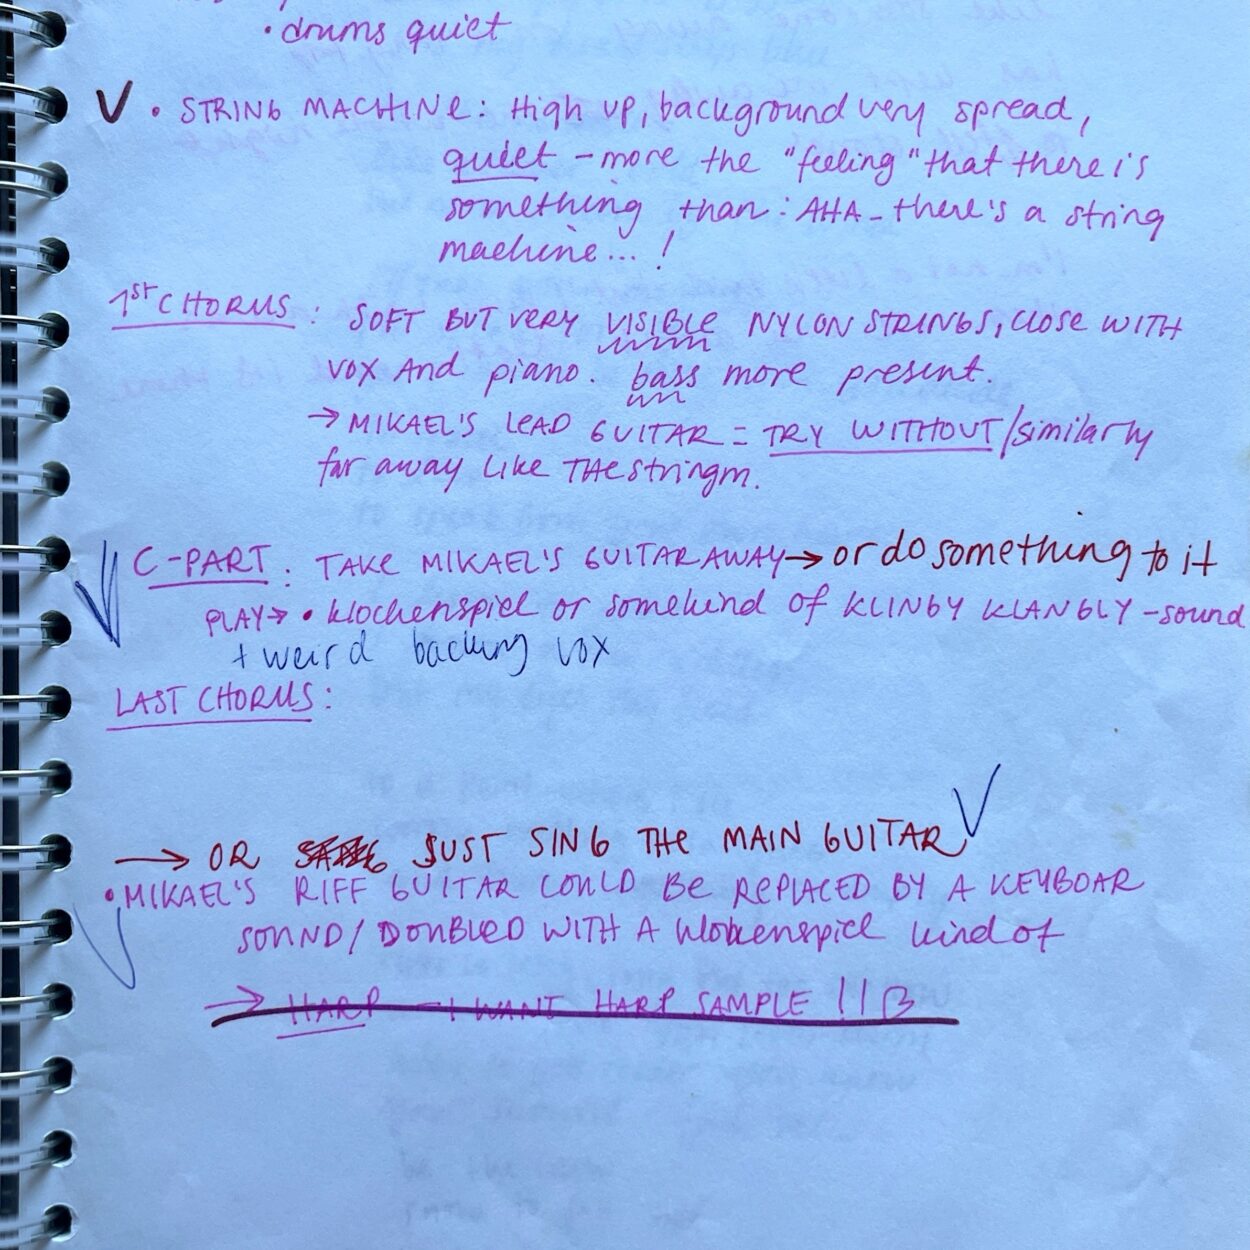 • drums quiet
V • STRING MACHINE: High up, background very spread,
quiet - more the "feeling" that there is
something than: AHA - there's a string
machine... !
1st CHORUS: SOFT BUT very VISIBLE NYLON STRINGS, close WITH
VOX And piano. bass more present.
→ MIKAEL'S LEAD GUITAR = TRY WITHOUT/similarly
far away like THE stringm.
C-PART: TAKE MIKAEL'S GUITAR AWAY → or do something to it
PLAY → • klochenspiel or somekind of KLINGY KLANGLY-sound
+ weird backing vox
LAST CHORUS:
→ OR JUST SING THE MAIN GUITAR
• MIKAEL'S RIFF GUITAR COULD BE REPLACED BY A KEYBOAR
SOUND/DOUBLED WITH A klokenspiel kind of
→ HARP - I WANT HARP SAMPLE !!